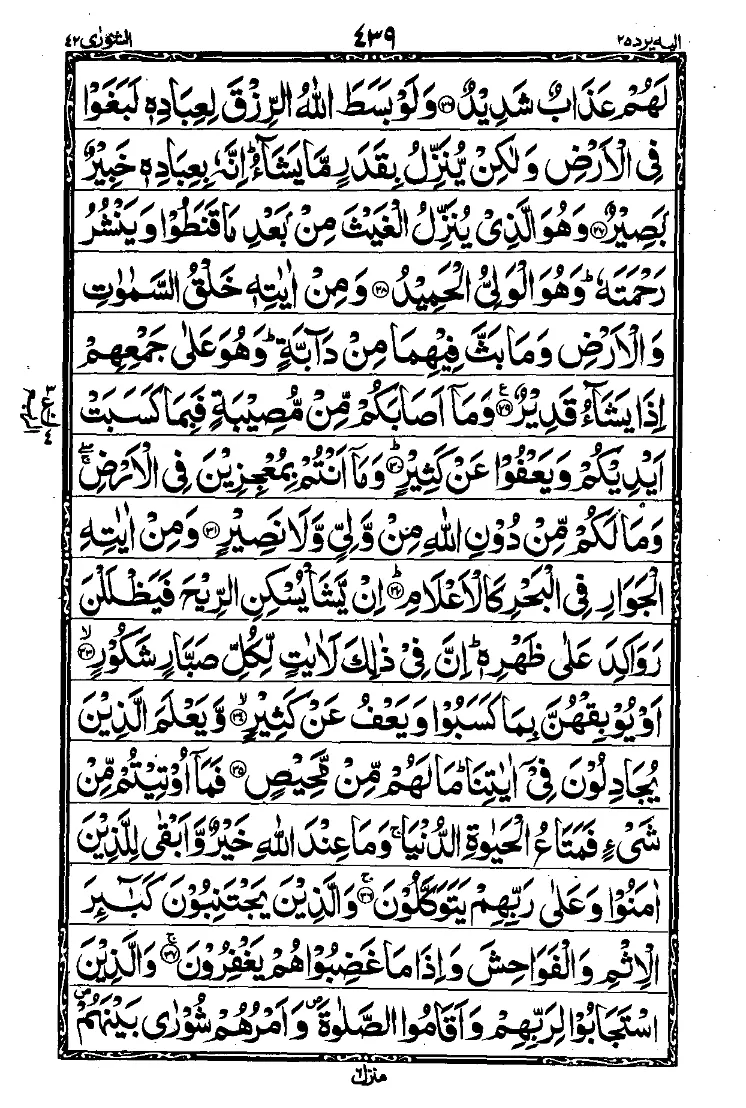 الیه یرد ۲۵
۴۳۹
الشوری ۴۲
لَهُمْ عَذَابٌ شَدِيْدٌ ۲۶ وَلَوْ بَسَطَ اللّٰهُ الرِّزْقَ لِعِبَادِهٖ لَبَغَوْا
فِى الْاَرْضِ وَلٰكِنْ يُّنَزِّلُ بِقَدَرٍ مَّا يَشَآءُ ؕ اِنَّهٗ بِعِبَادِهٖ خَبِيْرٌۢ
بَصِيْرٌ ۲۷ وَهُوَ الَّذِىْ يُنَزِّلُ الْغَيْثَ مِنْۢ بَعْدِ مَا قَنَطُوْا وَيَنْشُرُ
رَحْمَتَهٗ ؕ وَهُوَ الْوَلِىُّ الْحَمِيْدُ ۲۸ وَمِنْ اٰيٰتِهٖ خَلْقُ السَّمٰوٰتِ
وَالْاَرْضِ وَمَا بَثَّ فِيْهِمَا مِنْ دَآبَّةٍ ؕ وَهُوَ عَلٰى جَمْعِهِمْ
اِذَا يَشَآءُ قَدِيْرٌ ۲۹ ع وَمَآ اَصَابَكُمْ مِّنْ مُّصِيْبَةٍ فَبِمَا كَسَبَتْ
اَيْدِيْكُمْ وَيَعْفُوْا عَنْ كَثِيْرٍ ؕ ۳۰ وَمَآ اَنْتُمْ بِمُعْجِزِيْنَ فِى الْاَرْضِ ۖۚ
وَمَا لَكُمْ مِّنْ دُوْنِ اللّٰهِ مِنْ وَّلِىٍّ وَّلَا نَصِيْرٍ ۳۱ وَمِنْ اٰيٰتِهِ
الْجَوَارِ فِى الْبَحْرِ كَالْاَعْلَامِ ؕ ۳۲ اِنْ يَّشَاْ يُسْكِنِ الرِّيْحَ فَيَظْلَلْنَ
رَوَاكِدَ عَلٰى ظَهْرِهٖ ؕ اِنَّ فِىْ ذٰلِكَ لَاٰيٰتٍ لِّكُلِّ صَبَّارٍ شَكُوْرٍ ۙ ۳۳
اَوْ يُوْبِقْهُنَّ بِمَا كَسَبُوْا وَيَعْفُ عَنْ كَثِيْرٍ ۙ ۳۴ وَّيَعْلَمَ الَّذِيْنَ
يُجَادِلُوْنَ فِىْٓ اٰيٰتِنَا ؕ مَا لَهُمْ مِّنْ مَّحِيْصٍ ۳۵ فَمَآ اُوْتِيْتُمْ مِّنْ
شَىْءٍ فَمَتَاعُ الْحَيٰوةِ الدُّنْيَا ۚ وَمَا عِنْدَ اللّٰهِ خَيْرٌ وَّاَبْقٰى لِلَّذِيْنَ
اٰمَنُوْا وَعَلٰى رَبِّهِمْ يَتَوَكَّلُوْنَ ۚ ۳۶ وَالَّذِيْنَ يَجْتَنِبُوْنَ كَبٰٓئِرَ
الْاِثْمِ وَالْفَوَاحِشَ وَاِذَا مَا غَضِبُوْا هُمْ يَغْفِرُوْنَ ۚ ۳۷ وَالَّذِيْنَ
اسْتَجَابُوْا لِرَبِّهِمْ وَاَقَامُوا الصَّلٰوةَ ۪ وَاَمْرُهُمْ شُوْرٰى بَيْنَهُمْ ۪
منزل ۶